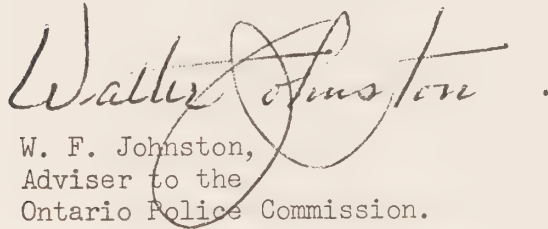 Walter Johnston.
W. F. Johnston,
Adviser to the
Ontario Police Commission.